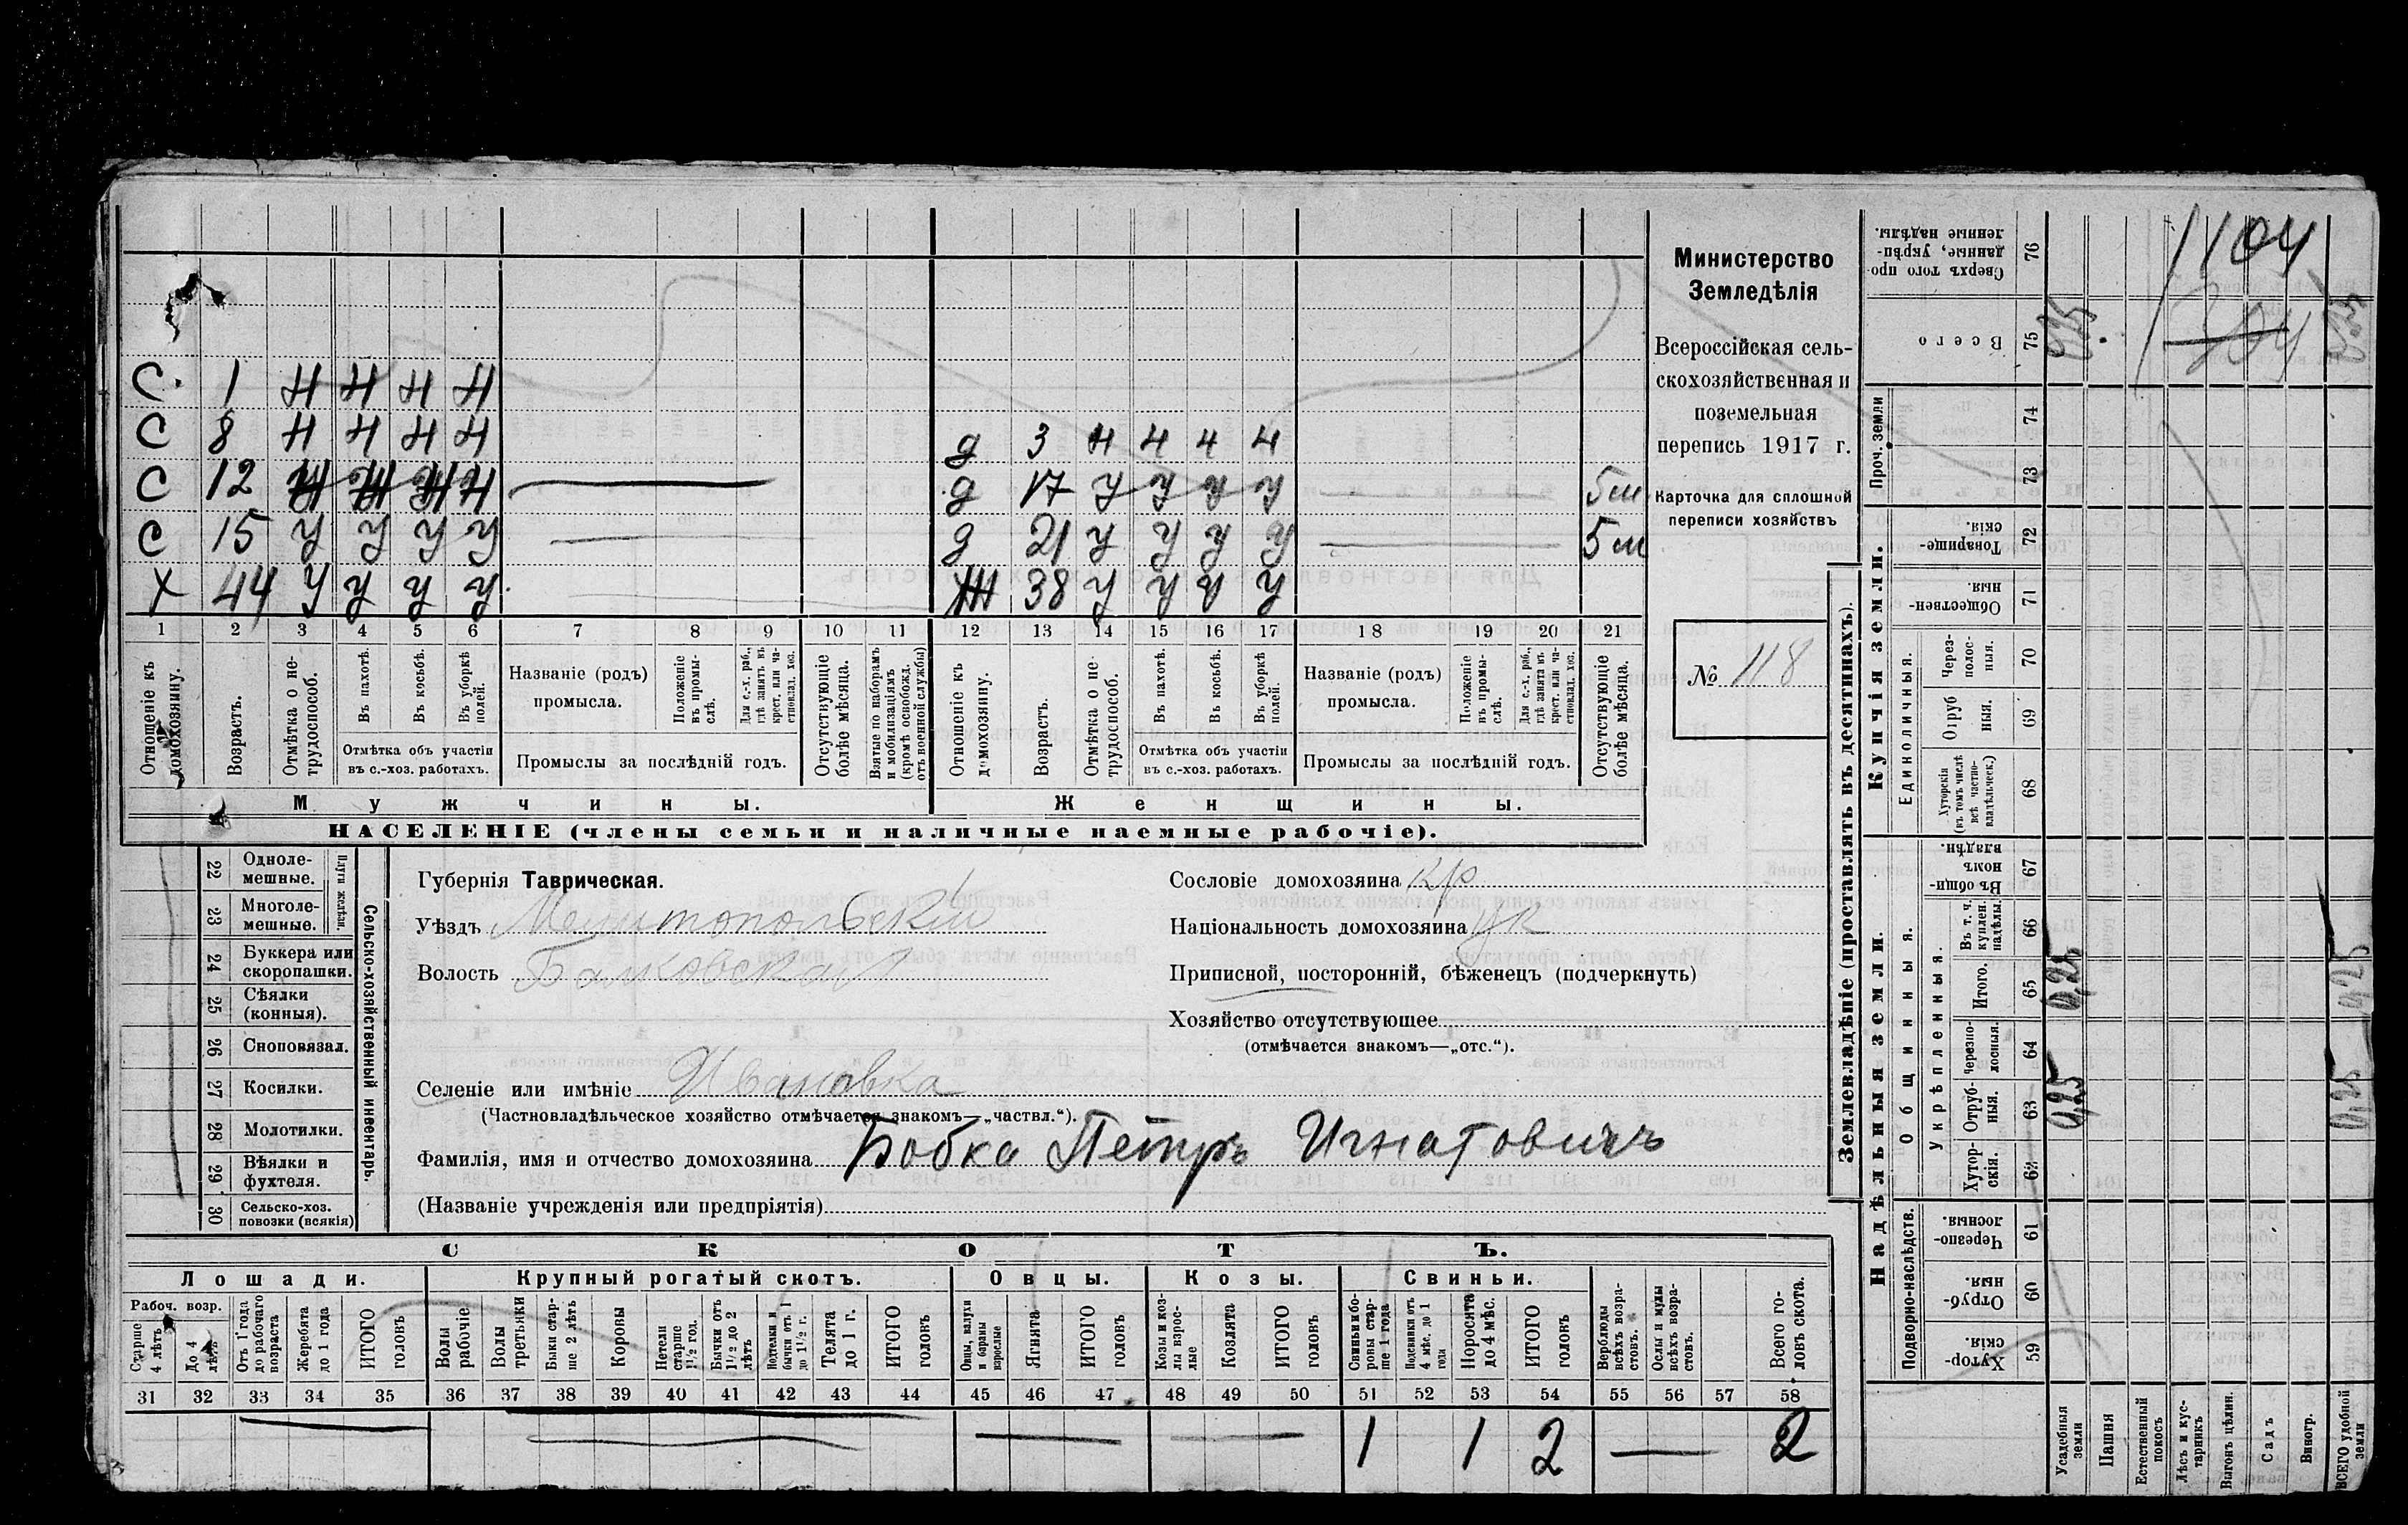 С 1 Н Н Н Н
С 8 Н Н Н Н д 3 Н Н Н Н
С 12 Н Н Н Н д 17 У У У У 5 м
С 15 У У У У д 21 У У У У 5 м
Х 44 У У У У Ж 38 У У У У
1 2 3 4 5 6 7 8 9 10 11 12 13 14 15 16 17 18 19 20 21
Отношеніе къ домохозяину.
Возрастъ.
Отмѣтка о не-
трудоспособ.
Въ пахотѣ.
Въ косьбѣ.
Въ уборкѣ
полей.
Отмѣтка объ участіи
въ с.-хоз. работахъ.
Названіе (родъ)
промысла.
Положеніе
въ промы-
слѣ.
Для с.-х. раб.,
гдѣ занятъ въ
крест. или ча-
стновлад. хоз.
Промыслы за послѣдній годъ.
Отсутствующіе
болѣе мѣсяца.
Взятые по наборамъ
и мобилизаціямъ
(кромѣ освобожд.
отъ военной службы)
Отношеніе къ
домохозяину.
Возрастъ.
Отмѣтка о не-
трудоспособ.
Въ пахотѣ.
Въ косьбѣ.
Въ уборкѣ
полей.
Отмѣтка объ участіи
въ с.-хоз. работахъ.
Названіе (родъ)
промысла.
Положеніе
въ промы-
слѣ.
Для с.-х. раб.,
гдѣ занята въ
крест. или ча-
стновлад. хоз.
Промыслы за послѣдній годъ.
Отсутствующіе
болѣе мѣсяца.
Мужчины. Женщины.
НАСЕЛЕНІЕ (члены семьи и наличные наемные рабочіе).
Министерство
Земледѣлія
Всероссійская сель-
скохозяйственная и
поземельная
перепись 1917 г.
Карточка для сплошной
переписи хозяйствъ
№ 118
Сельско-хозяйственный инвентарь.
Плуги желѣзн.
22 Одноле-
мешные.
23 Многоле-
мешные.
24 Буккера или
скоропашки.
25 Сѣялки
(конныя).
26 Сноповязал.
27 Косилки.
28 Молотилки.
29 Вѣялки и
фухтеля.
30 Сельско-хоз.
повозки (всякія)
Губернія Таврическая.
Уѣздъ Мелитопольскій
Волость Балковская
Селеніе или имѣніе Ивановка
(Частновладѣльческое хозяйство отмѣчается знакомъ—„частвл.“).
Фамилія, имя и отчество домохозяина Бобка Петръ Игнатовичъ
(Названіе учрежденія или предпріятія)
Сословіе домохозяина кр
Національность домохозяина ук
Приписной, посторонній, бѣженецъ (подчеркнуть)
Хозяйство отсутствующее
(отмѣчается знакомъ—„отс.“).
СКОТЪ.
Лошади. Крупный рогатый скотъ. Овцы. Козы. Свиньи.
Рабоч. возр.
Старше
4 лѣтъ
До 4
лѣтъ
Отъ 1 года
до рабочаго
возраста
Жеребята
до 1 года
ИТОГО
головъ
Волы
рабочіе
Волы
третьяки
Быки стар-
ше 2 лѣтъ
Коровы
Нетели
старше
1½ год.
Бычки отъ
1½ до 2
лѣтъ
Подтелки и
бычки отъ 1
до 1½ г.
Телята
до 1 г.
ИТОГО
головъ
Овцы, валухи
и бараны
взрослые
Ягнята
ИТОГО
головъ
Козы и коз-
лы взрос-
лые
Козлята
ИТОГО
головъ
Свиньи и бо-
ровы стар-
ше 1 года
Подсвинки отъ
4 мѣс. до 1
года
Поросята
до 4 мѣс.
ИТОГО
головъ
Верблюды
всѣхъ возра-
стовъ.
Ослы и мулы
всѣхъ возра-
стовъ.
Всего го-
ловъ скота.
31 32 33 34 35 36 37 38 39 40 41 42 43 44 45 46 47 48 49 50 51 52 53 54 55 56 57 58
1 1 2 2
Землевладѣніе (проставлять въ десятинахъ).
Сверхъ того про-
данные, укрѣп-
ленные надѣлы.
76
1104
Всего
75
0,25
304
0,25
Купчія земли.
Проч. земли
74
73
Товарище-
скія.
72
Обществен-
ныя
71
Единоличныя.
Через-
полос-
ныя.
70
Отруб
ныя.
69
Хуторскія
(въ томъ числѣ
всѣ частно-
владѣльческ.)
68
Надѣльныя земли.
Общинныя.
Въ общи-
номъ
владѣн.
67
Укрѣпленныя.
Въ т. ч.
куплен.
надѣлы.
66
Итого.
65
0,25
0,25
Черезпо-
лосныя.
64
Отруб-
ныя.
63
0,25
0,25
Хутор-
скія.
62
Подворно-наслѣдств.
Черезпо-
лосныя.
61
Отруб-
ныя.
60
Хутор-
скія.
59
Усадебныя
земли
Пашня
Естественный
покосъ
Лѣсъ и кус-
тарникъ
Выгонъ цѣлин.
Садъ
Виногр.
ВСЕГО удобной
земли